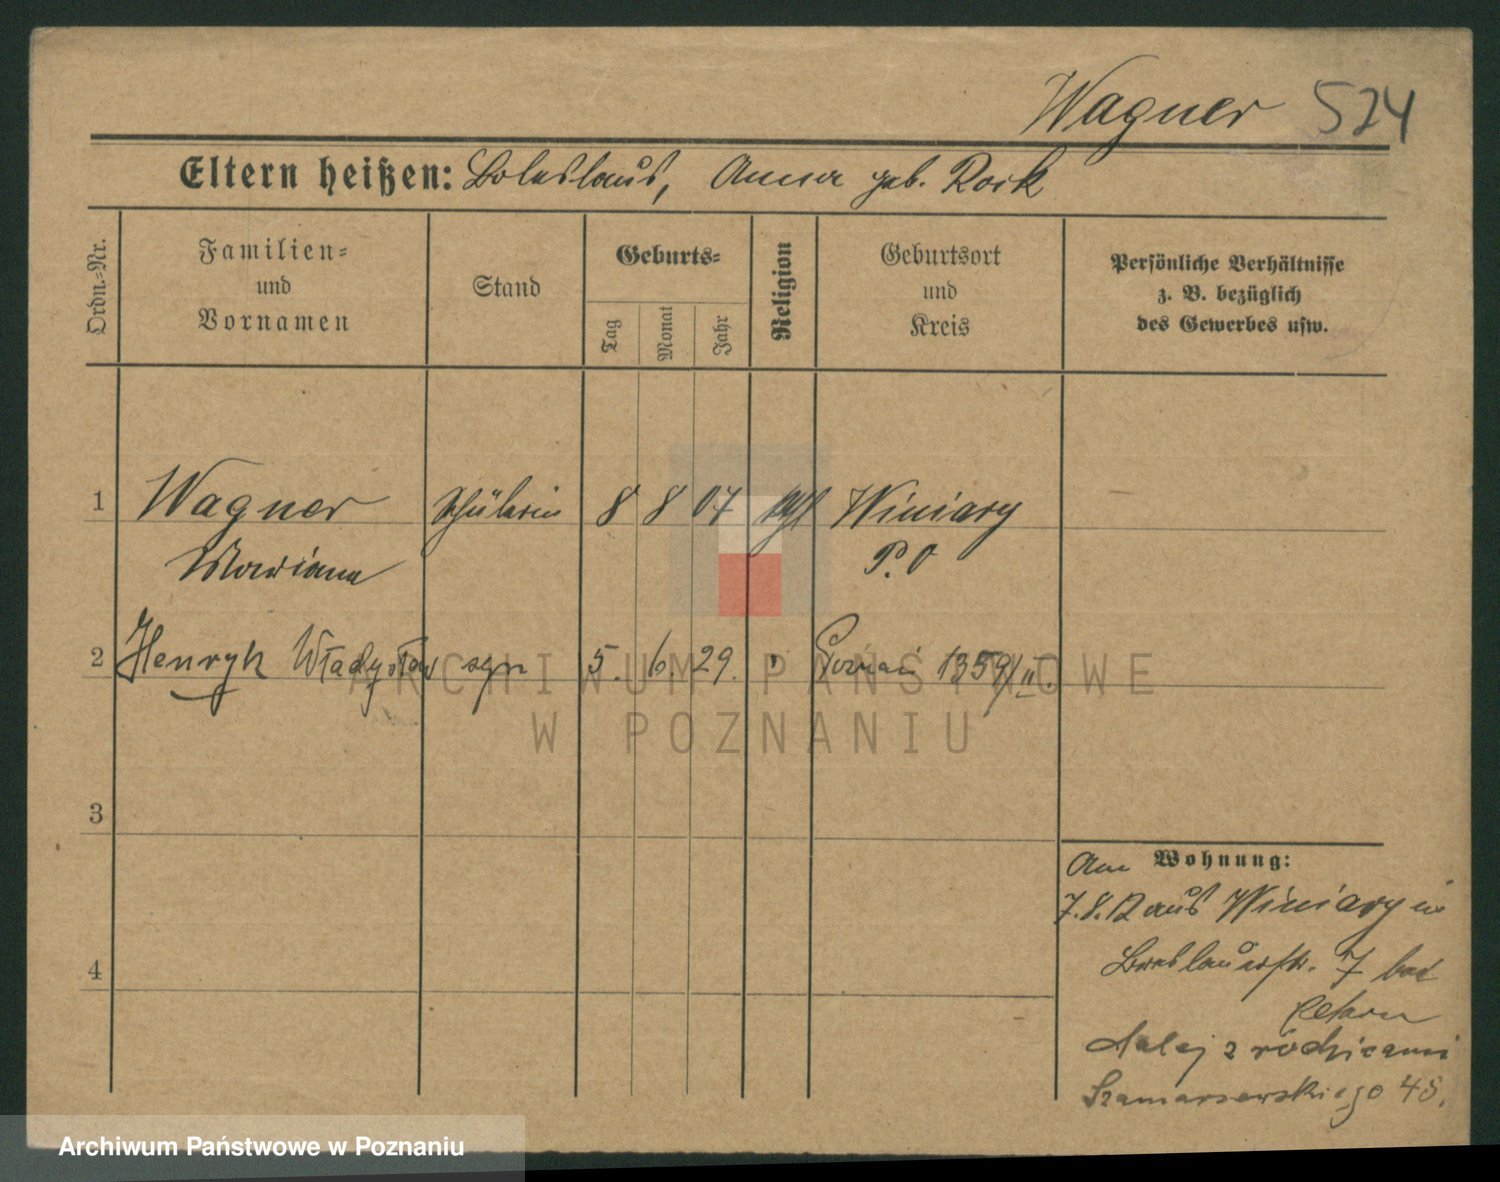 Wagner 524
Eltern heißen: Boleslaus, Anna geb. Rosik
Ordn.-Nr.
Familien-
und
Vornamen
Stand
Geburts-
Tag
Monat
Jahr
Religion
Geburtsort
und
Kreis
Persönliche Verhältnisse
z. B. bezüglich
des Gewerbes usw.
1 Wagner Schülerin 8 8 07 Winiary
Mariana P. O
2 Henryk Władysław syn 5. 6. 29. " Poznań 1359/II
3
4
Wohnung:
Am
7.8.12 aus Winiary in
Breslauerstr. 7 bei
Eltern
dalej z rodzicami
Szamarzewskiego 48.
ARCHIWUM PAŃSTWOWE
W POZNANIU
Archiwum Państwowe w Poznaniu